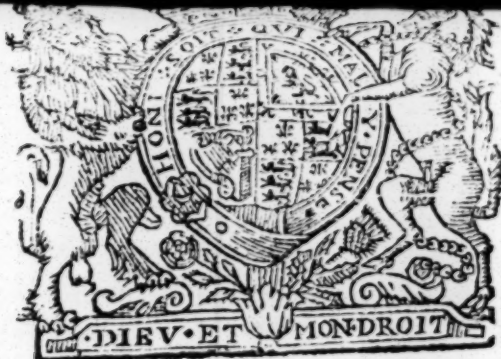 HONI·SOIT·QVI·MAL·Y·PENSE
·DIEV·ET MON·DROIT